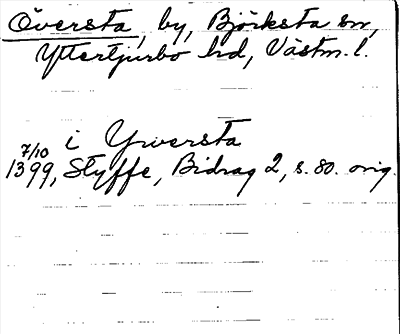 Översta, by, Björksta sn,
Yttertjurbo hd, Västm. l.
i Ywersta
7/10
1399, Styffe, Bidrag 2, s. 80. orig.